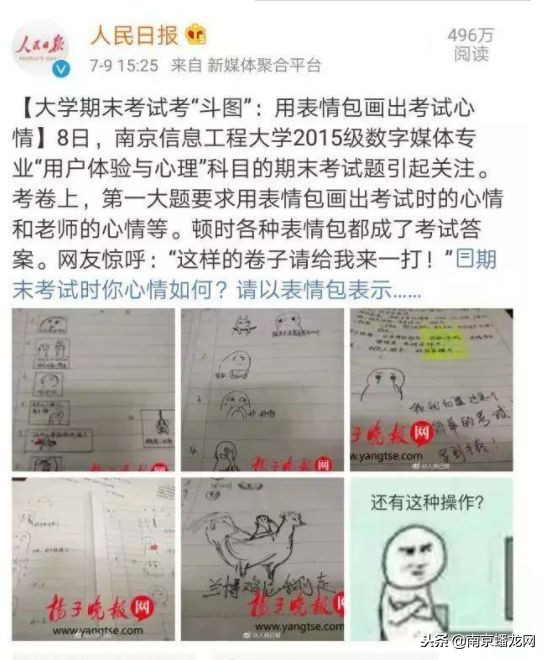 人民日报
人民日报
496万
阅读
7-9 15:25 来自 新媒体聚合平台
【大学期末考试考“斗图”：用表情包画出考试心
情】8日，南京信息工程大学2015级数字媒体专
业“用户体验与心理”科目的期末考试题引起关注。
考卷上，第一大题要求用表情包画出考试时的心情
和老师的心情等。顿时各种表情包都成了考试答
案。网友惊呼：“这样的卷子请给我来一打！”期
末考试时你心情如何？请以表情包表示……
扬子晚报网
扬子晚报网
www.yangtse.com
@人民日报
还有这种操作？
兰博鸡已
扬子晚报网
www.yangtse.com
扬子晚报网
www.yangtse.com
@人民日报
头条 @南京蟠龙网